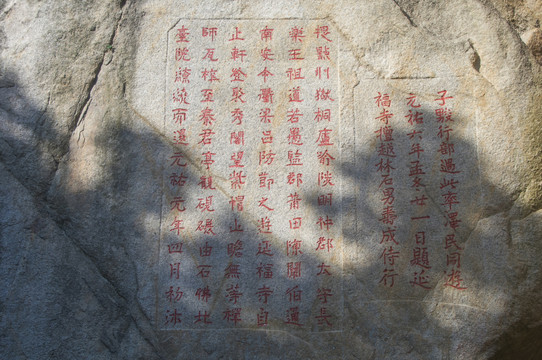 子駿行部過此率澤民同遊
元祐六年孟冬廿一日題延
福寺檀越林石男番成侍行
提點刑獄桐廬喻陟明仲郡太守長
樂王祖道若愚監郡莆田陳開伯通
南安令衢梁呂防節之遊延福寺自
上軒登聚秀閣望紫帽山瞻無等禪
師石龕至秦君亭觀硯由石佛
臺院而還元祐元年四月初沐